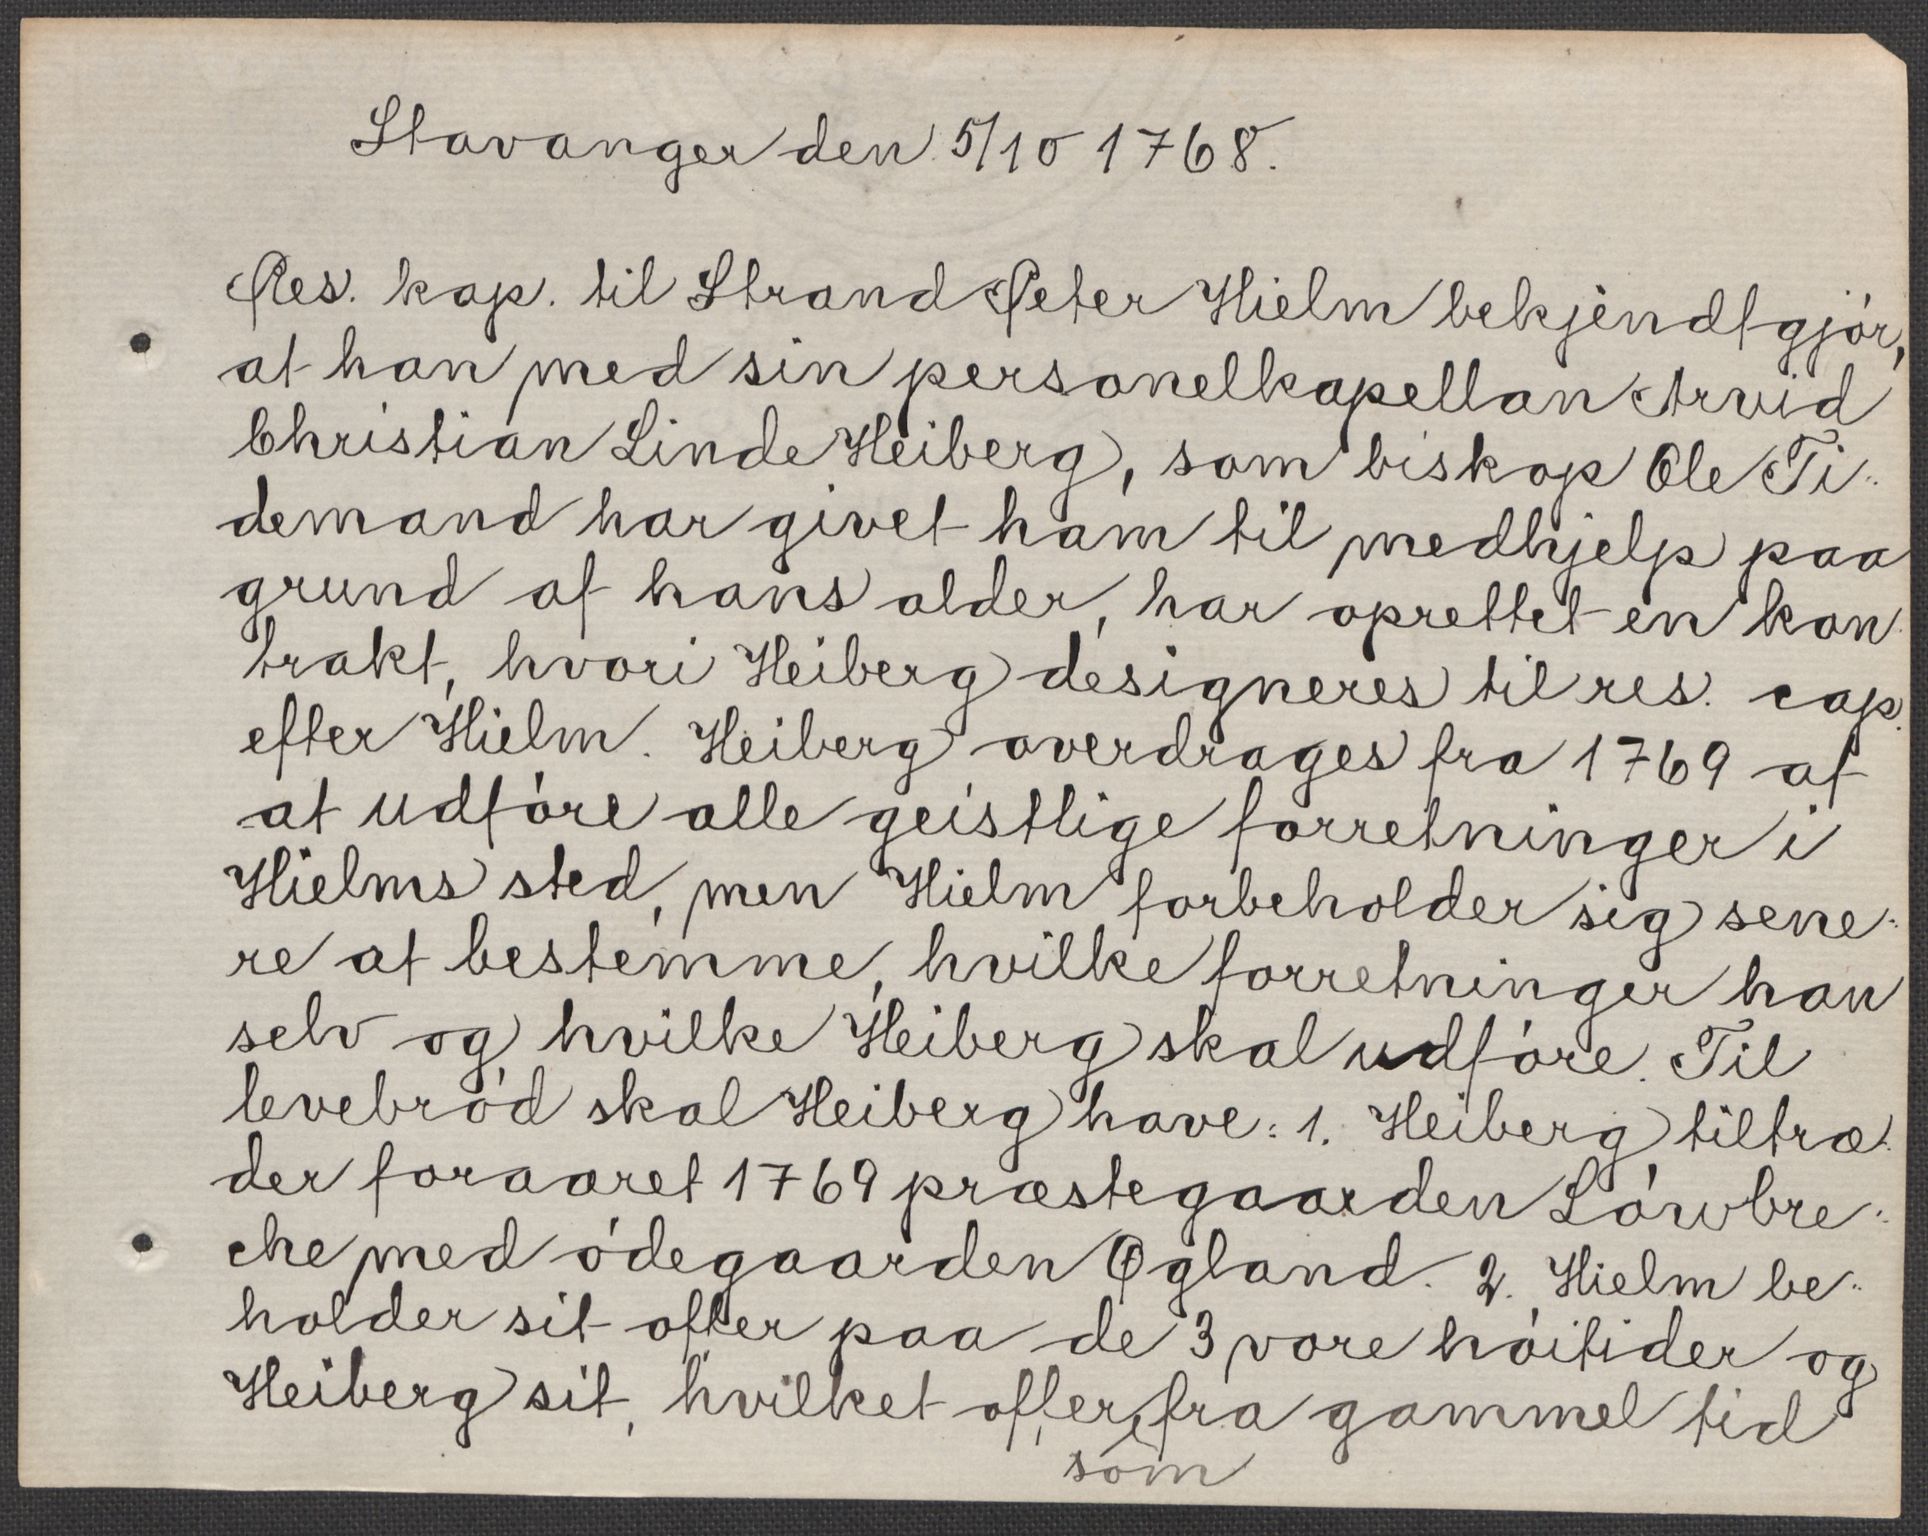 Stavanger den 5/10 1768.
Res. kap. til Strand Peter Hielm bekjendtgjór,
at han med sin personelkapellan Arvid
Christian Linde Heiberg, som biskop Ole Ti-
demand har givet ham til medhjelp paa
grund af hans alder, har oprettet en kon-
trakt, hvori Heiberg designeres til res. cap.
efter Hielm. Heiberg overdrages fra 1769 af
at udfóre alle geistlige forretninger i
Hielms sted, men Hielm forbeholder sig sene-
re at bestemme, hvilke forretninger han
selv og hvilke Heiberg skal udfóre. Til
levebród skal Heiberg have: 1. Heiberg tiltræ-
der foraaret 1769 præstegaarden Lówbre-
che med ódegaarden Øgland. 2. Hielm be-
holder sit offer paa de 3 vore hóitider og
Heiberg sit, hvilket offer, fra gammel tid
som